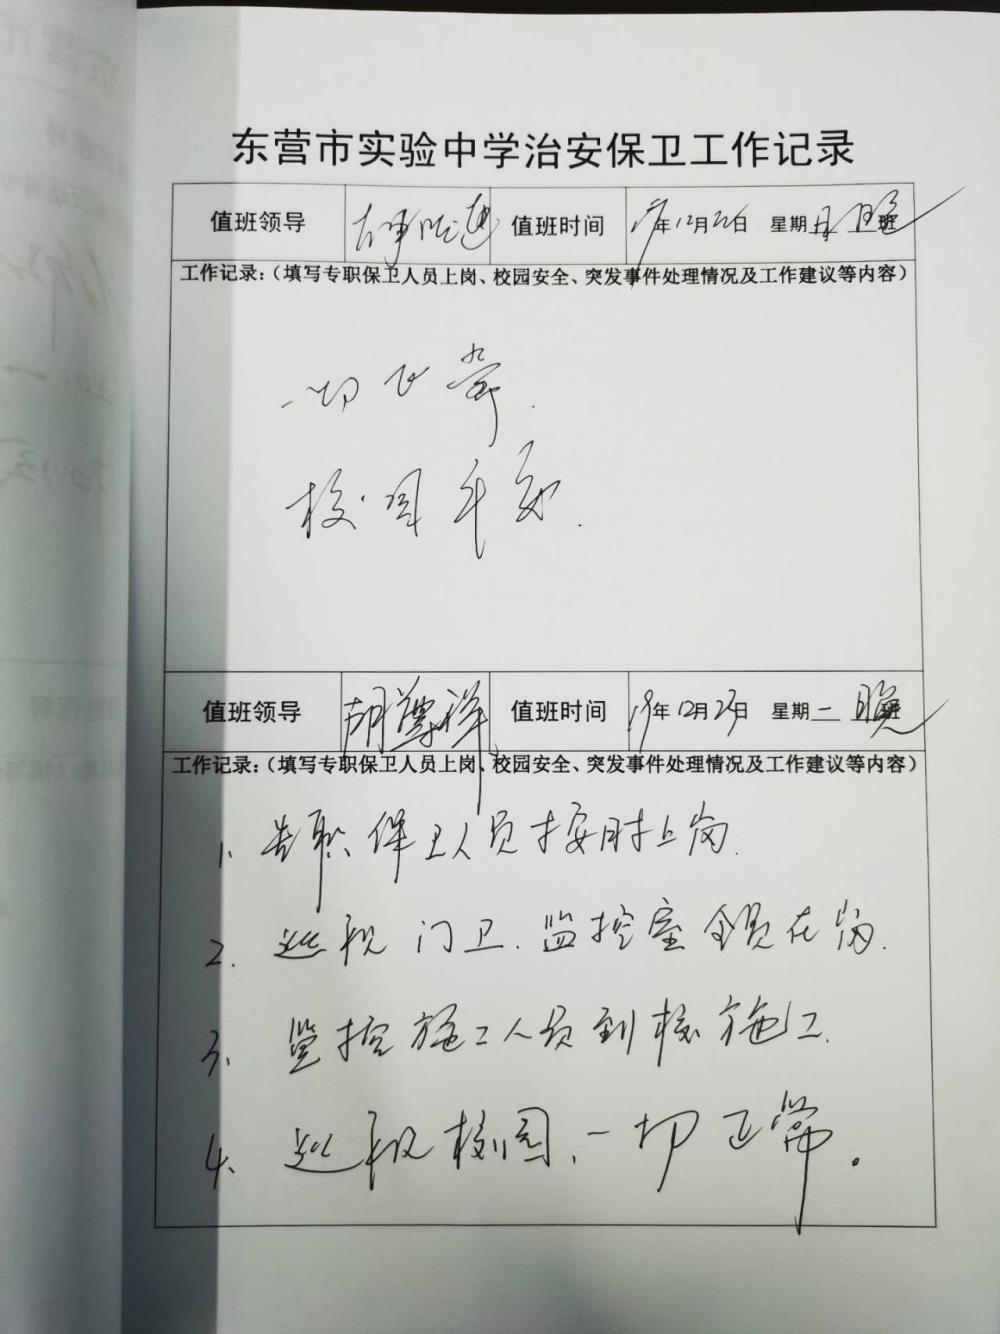 东营市实验中学治安保卫工作记录
值班领导 值班时间 19年12月22日 星期日 晚班
工作记录:(填写专职保卫人员上岗、校园安全、突发事件处理情况及工作建议等内容)
一切正常.
校园平安.
值班领导 胡尊祥 值班时间 19年12月23日 星期一 晚班
工作记录:(填写专职保卫人员上岗、校园安全、突发事件处理情况及工作建议等内容)
1、专职保卫人员按时上岗.
2、巡视门卫.监控室全员在岗.
3、监控施工人员到校施工.
4、巡视校园、一切正常。